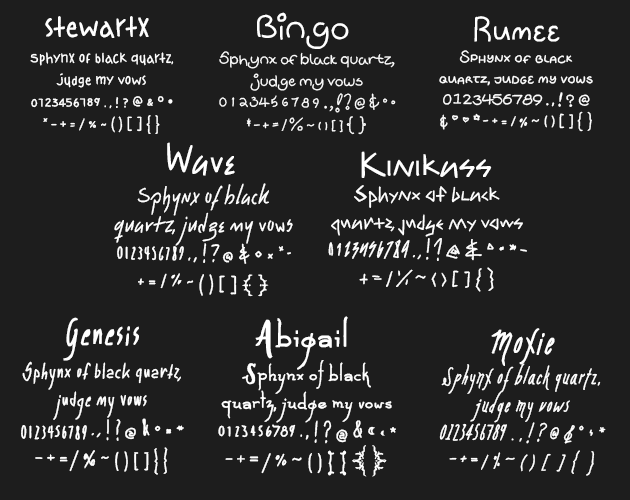 stewartX
Sphynx of black quartz,
judge my vows
0123456789.,!?@&°•
*-+=/%~()[]{}
Bingo
Sphynx of black quartz,
judge my vows
0123456789.,!?@&°•
*-+=/%~()[]{}
Rumee
Sphynx of black
quartz, judge my vows
0123456789.,!?@
&-+=/%~()[]{}
Wave
Sphynx of black
quartz, judge my vows
0123456789.,!?@&°×*-
+=/%~()[]{}
Kinikass
Sphynx of black
quartz, judge my vows
0123456789.,!?@&°•*-
+=/%~()[]{}
Genesis
Sphynx of black quartz,
judge my vows
0123456789.,!?@&°•*
-+=/%~()[]{}
Abigail
Sphynx of black
quartz, judge my vows
0123456789.,!?@&*
-+=/%~()[]{}
Moxie
Sphynx of black quartz,
judge my vows
0123456789.,!?@&°*
-+=/%~()[]{}